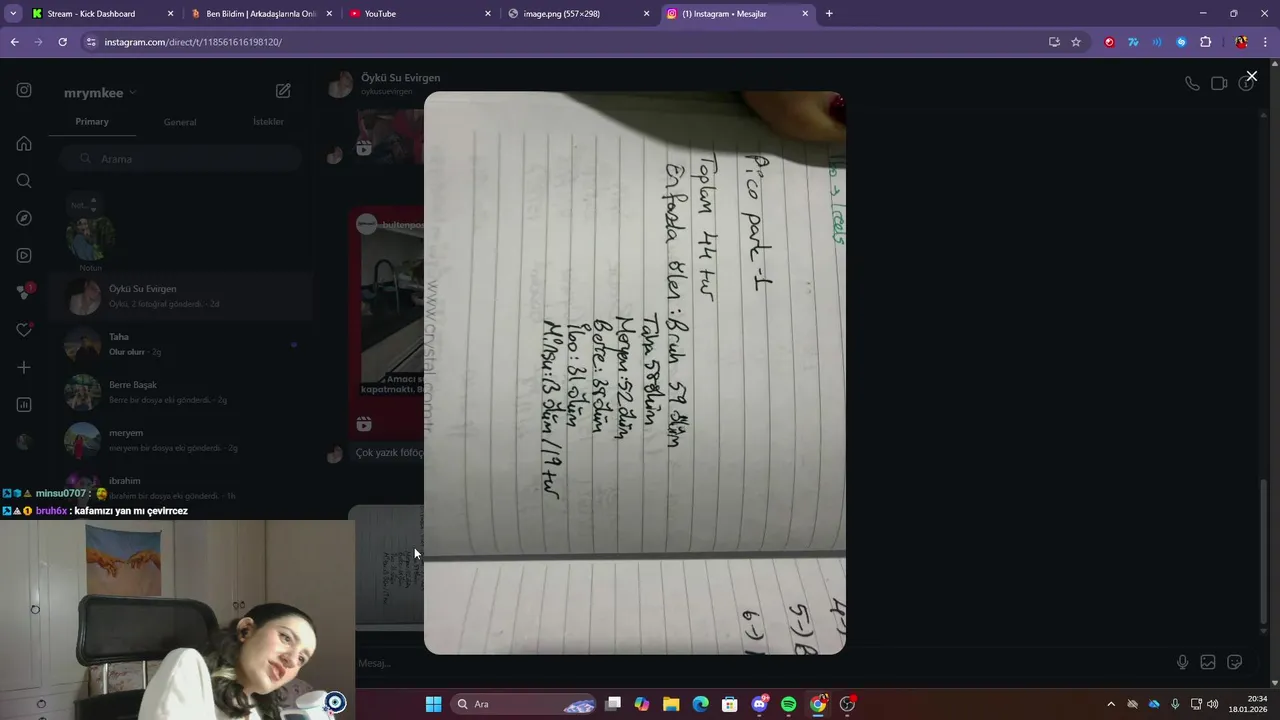 Stream - Kick Dashboard
Ben Bildim | Arkadaşlarınla Onli
YouTube
image.png (557×298)
(1) Instagram • Mesajlar
instagram.com/direct/t/118561616198120/
mrymkee
Primary
General
İstekler
Arama
Notun
Öykü Su Evirgen
Öykü, 2 fotoğraf gönderdi. · 2d
Taha
Olur olurr · 2g
Berre Başak
Berre bir dosya eki gönderdi. · 2g
meryem
meryem bir dosya eki gönderdi. · 2g
ibrahim
ibrahim bir dosya eki gönderdi. · 1h
minsu0707 :
bruh6x : kafamızı yan mı çevirrcez
Öykü Su Evirgen
oykusuevirgen
bultenpos
Amacı s
kapatmaktı, 8
Çok yazık föföç
Mesaj...
Pico park -1
Toplam 44 tur
En fazla ölen : Bruh 59 ölüm
Taha 58 ölüm
Meryem : 52 ölüm
Berre : 38 ölüm
İbo : 31 ölüm
Minsu : 13 ölüm / 19 tur
www.crystal.com.tr
5-)
6-)
Ara
20:34
18.01.2026